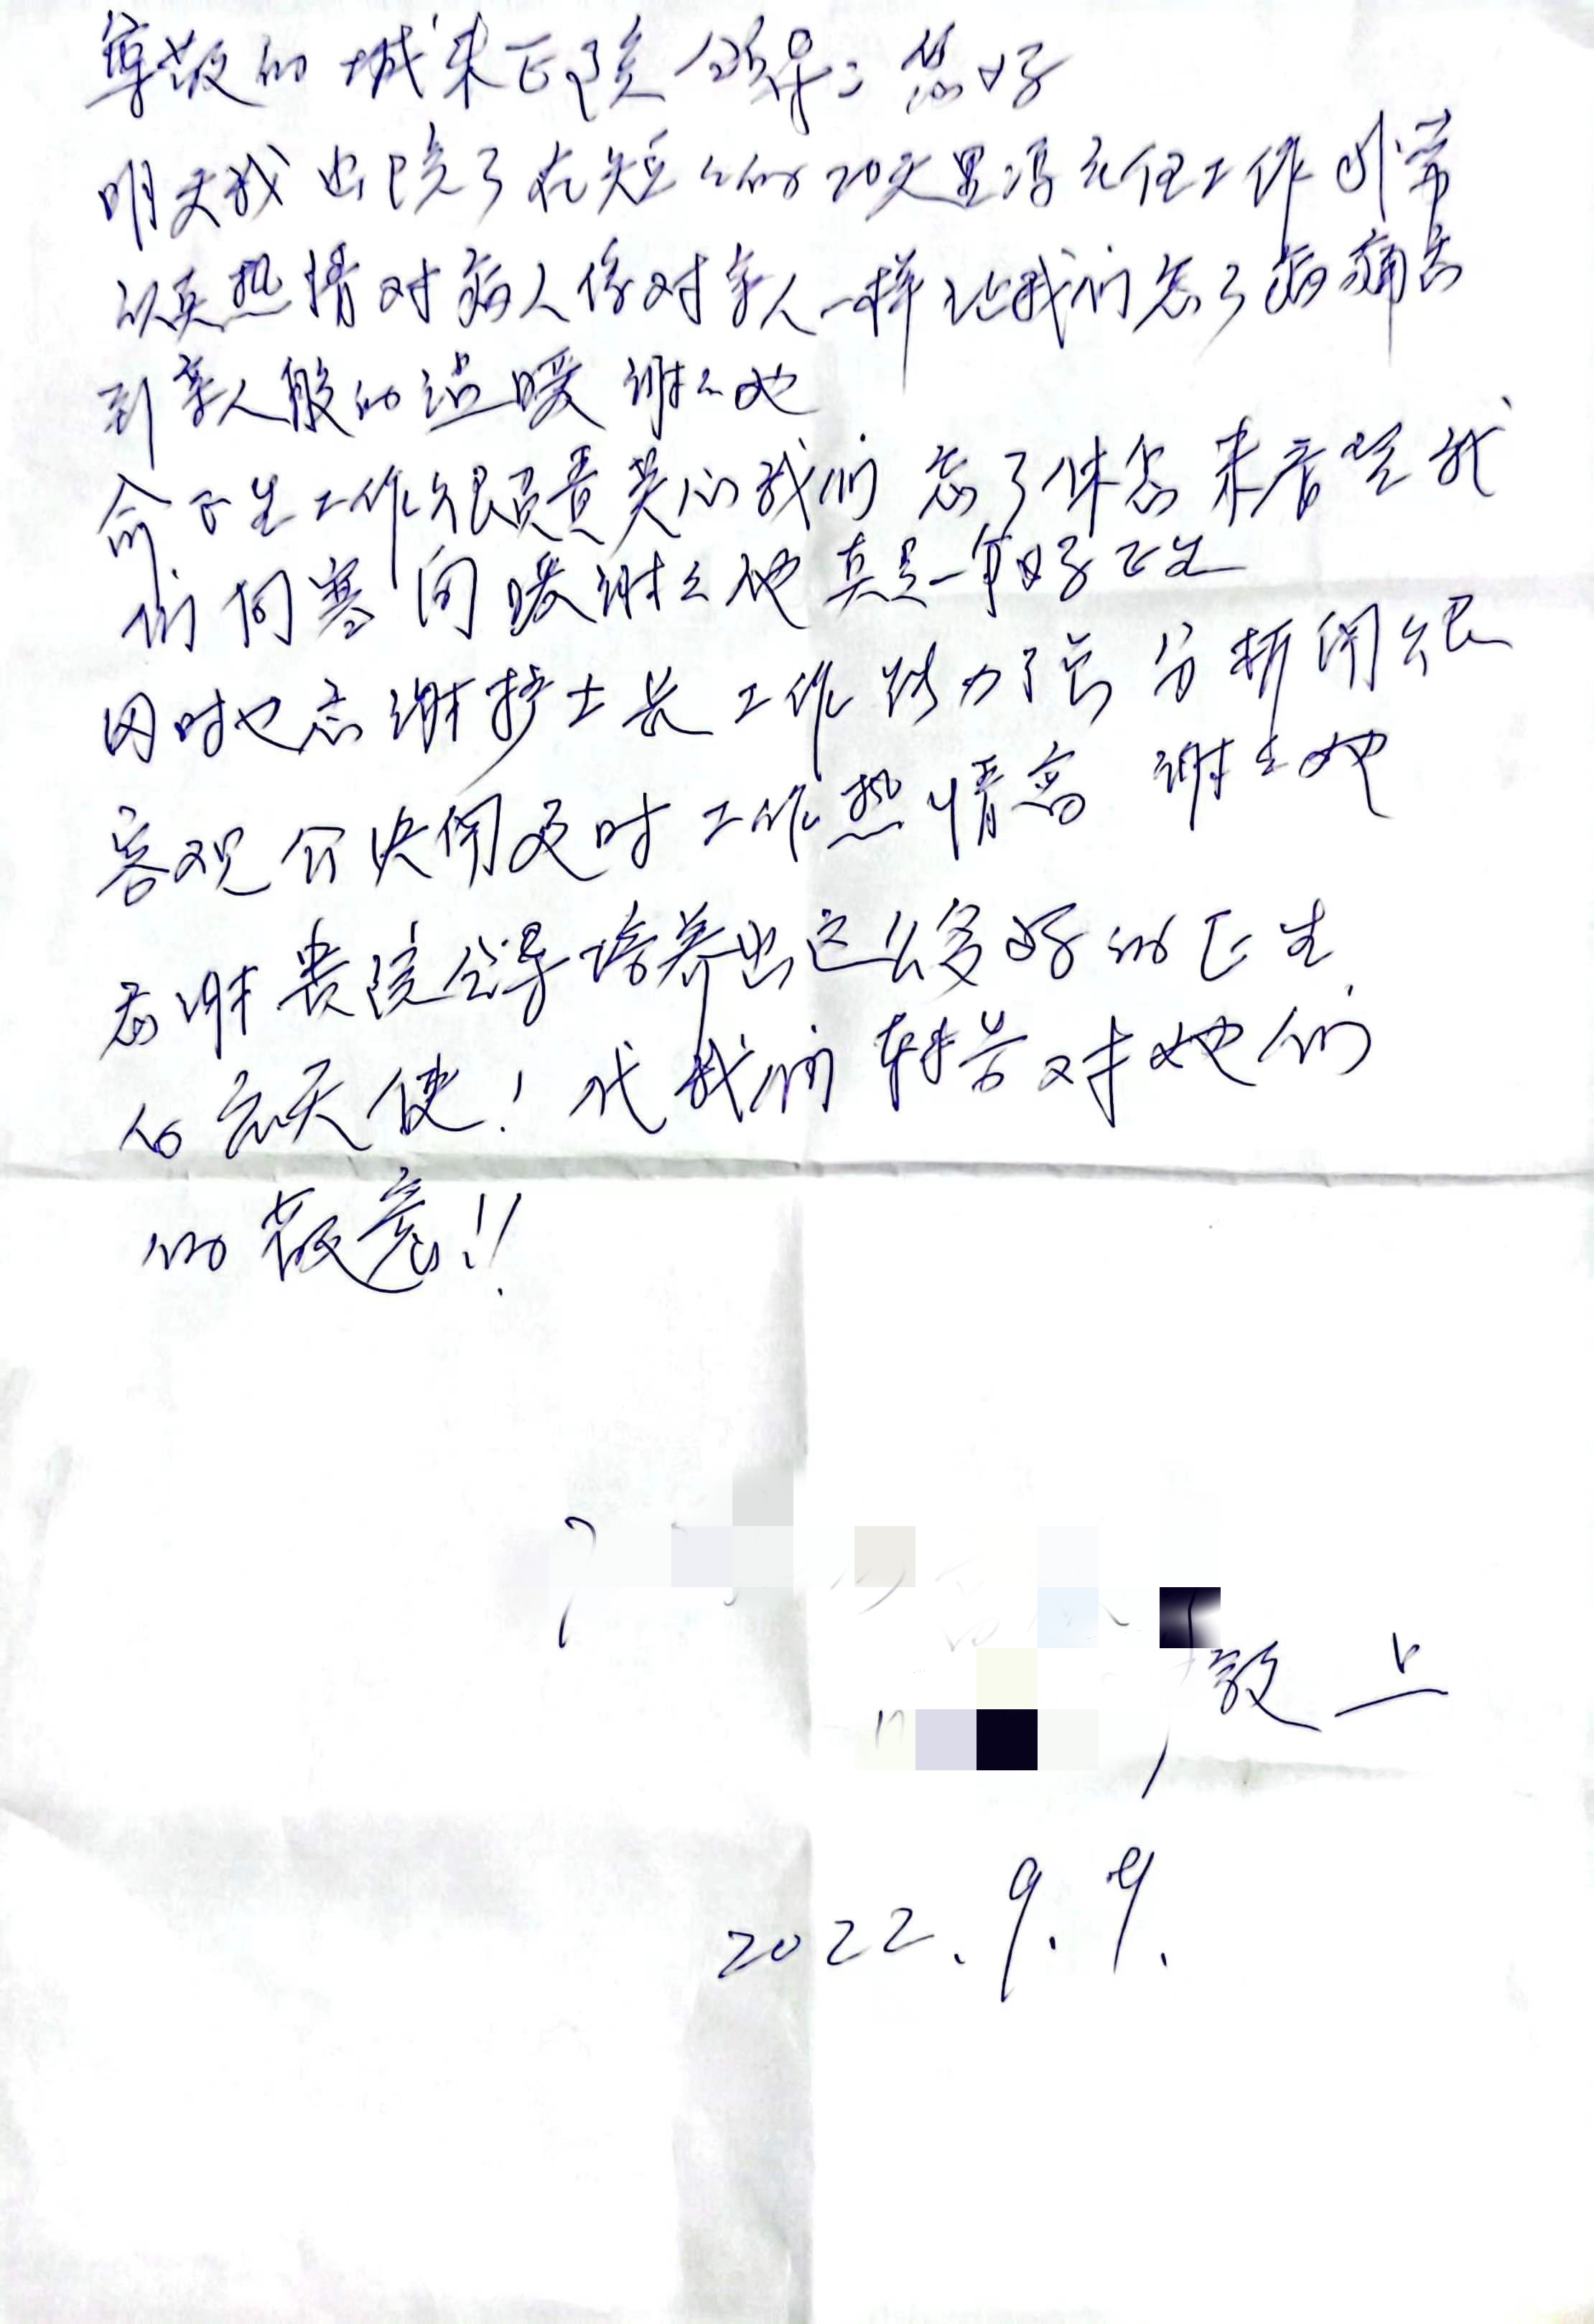 尊敬的城東医院领导：您好
明天我出院了在短々的20天里冯主任工作非常
认真热情对病人像对亲人一样让我们忘了病痛感
到亲人般的温暖 谢々她
俞医生工作很负责关心我们 忘了休息来看望我
们问寒问暖谢々他真是一年好医生
同时也感谢护士长工作能力强 分析问题很
客观介决问题及时工作热情高 谢々她
感谢贵院领导培养出这么多好的医生
白衣天使！代我们转告对她们
的敬意！！
敬上
2022.9.9.